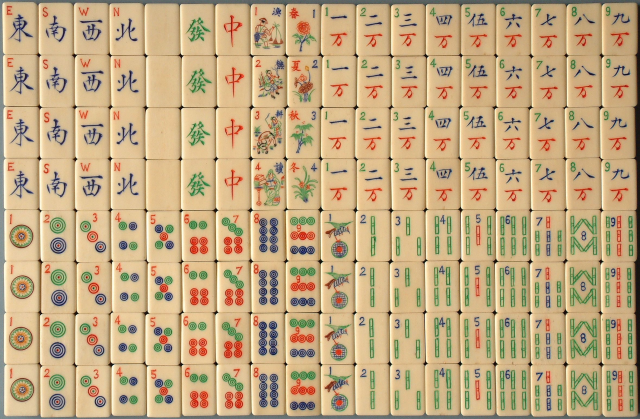 E S W N 1 春 1 1 2 3 4 5 6 7 8 9
東 南 西 北 發 中 一 二 三 四 伍 六 七 八 九
万 万 万 万 万 万 万 万 万
E S W N 2 夏 2 1 2 3 4 5 6 7 8 9
東 南 西 北 發 中 一 二 三 四 伍 六 七 八 九
万 万 万 万 万 万 万 万 万
E S W N 3 秋 3 1 2 3 4 5 6 7 8 9
東 南 西 北 發 中 一 二 三 四 伍 六 七 八 九
万 万 万 万 万 万 万 万 万
E S W N 4 冬 4 1 2 3 4 5 6 7 8 9
東 南 西 北 發 中 一 二 三 四 伍 六 七 八 九
万 万 万 万 万 万 万 万 万
1 2 3 4 5 6 7 8 9 1 2 3 4 5 6 7 8 9
1 2 3 4 5 6 7 8 9 1 2 3 4 5 6 7 8 9
1 2 3 4 5 6 7 8 9 1 2 3 4 5 6 7 8 9
1 2 3 4 5 6 7 8 9 1 2 3 4 5 6 7 8 9